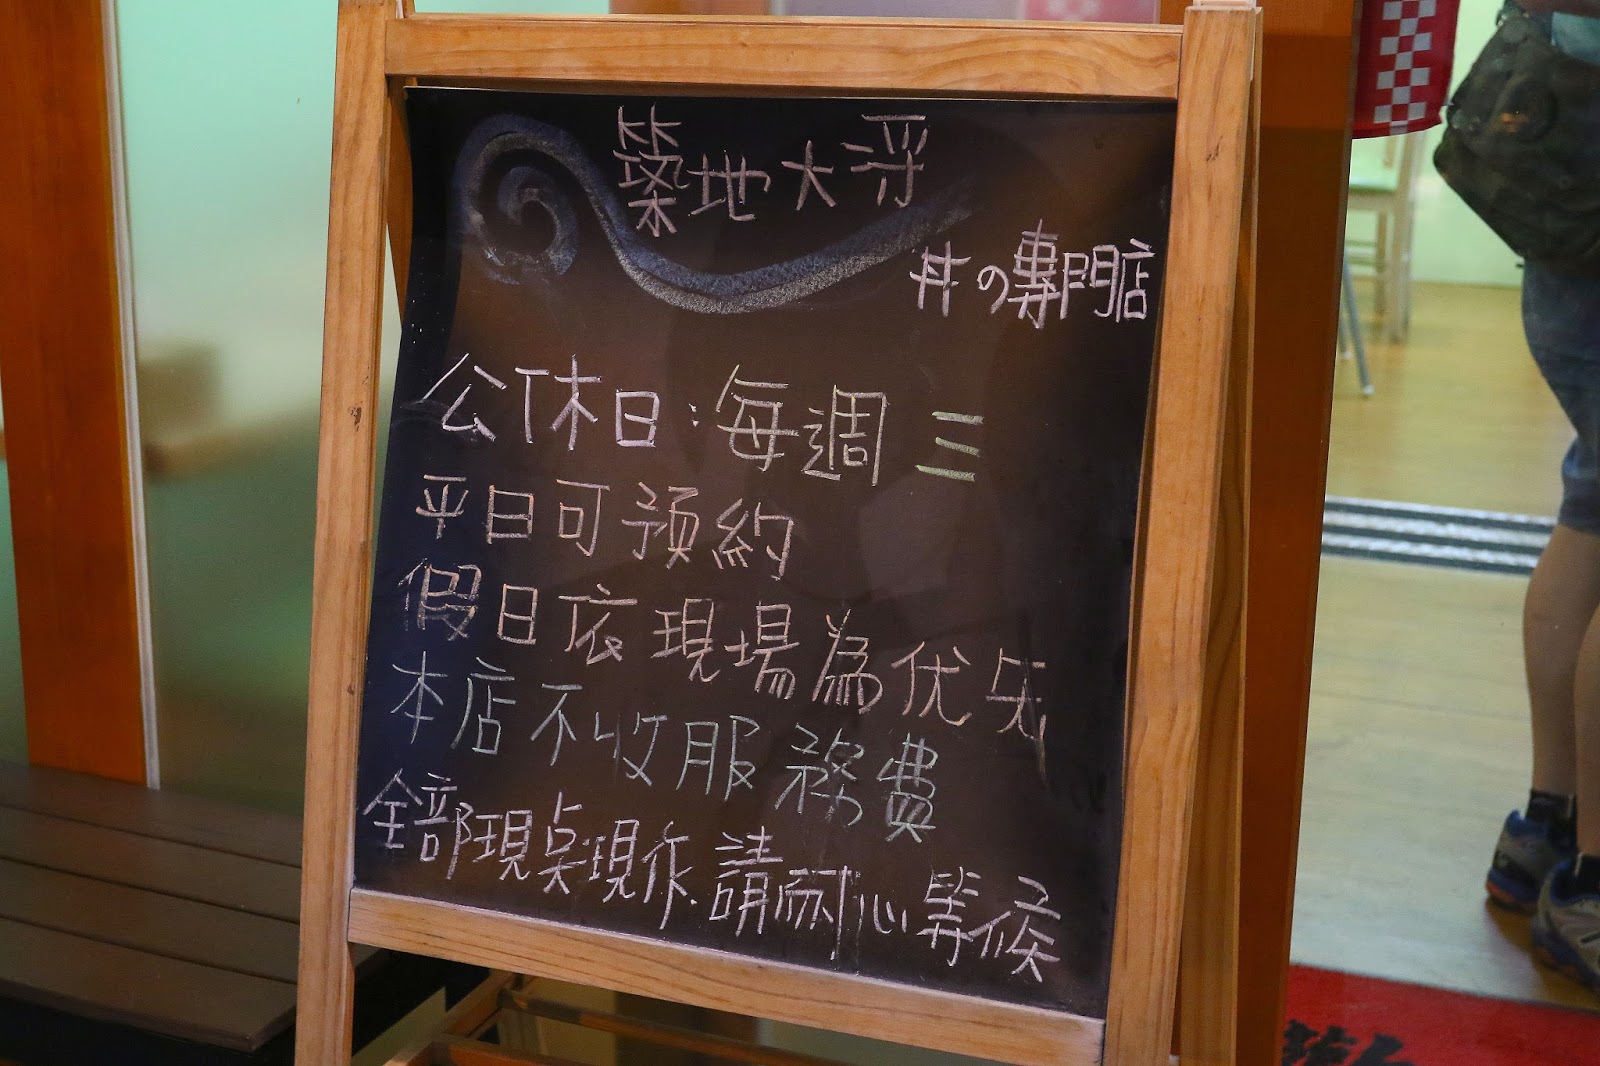 築地大将
丼の專門店
公休日:每週三
平日可預約
假日依現場為优先
本店不收服務費
全部現奌現作.請耐心等候